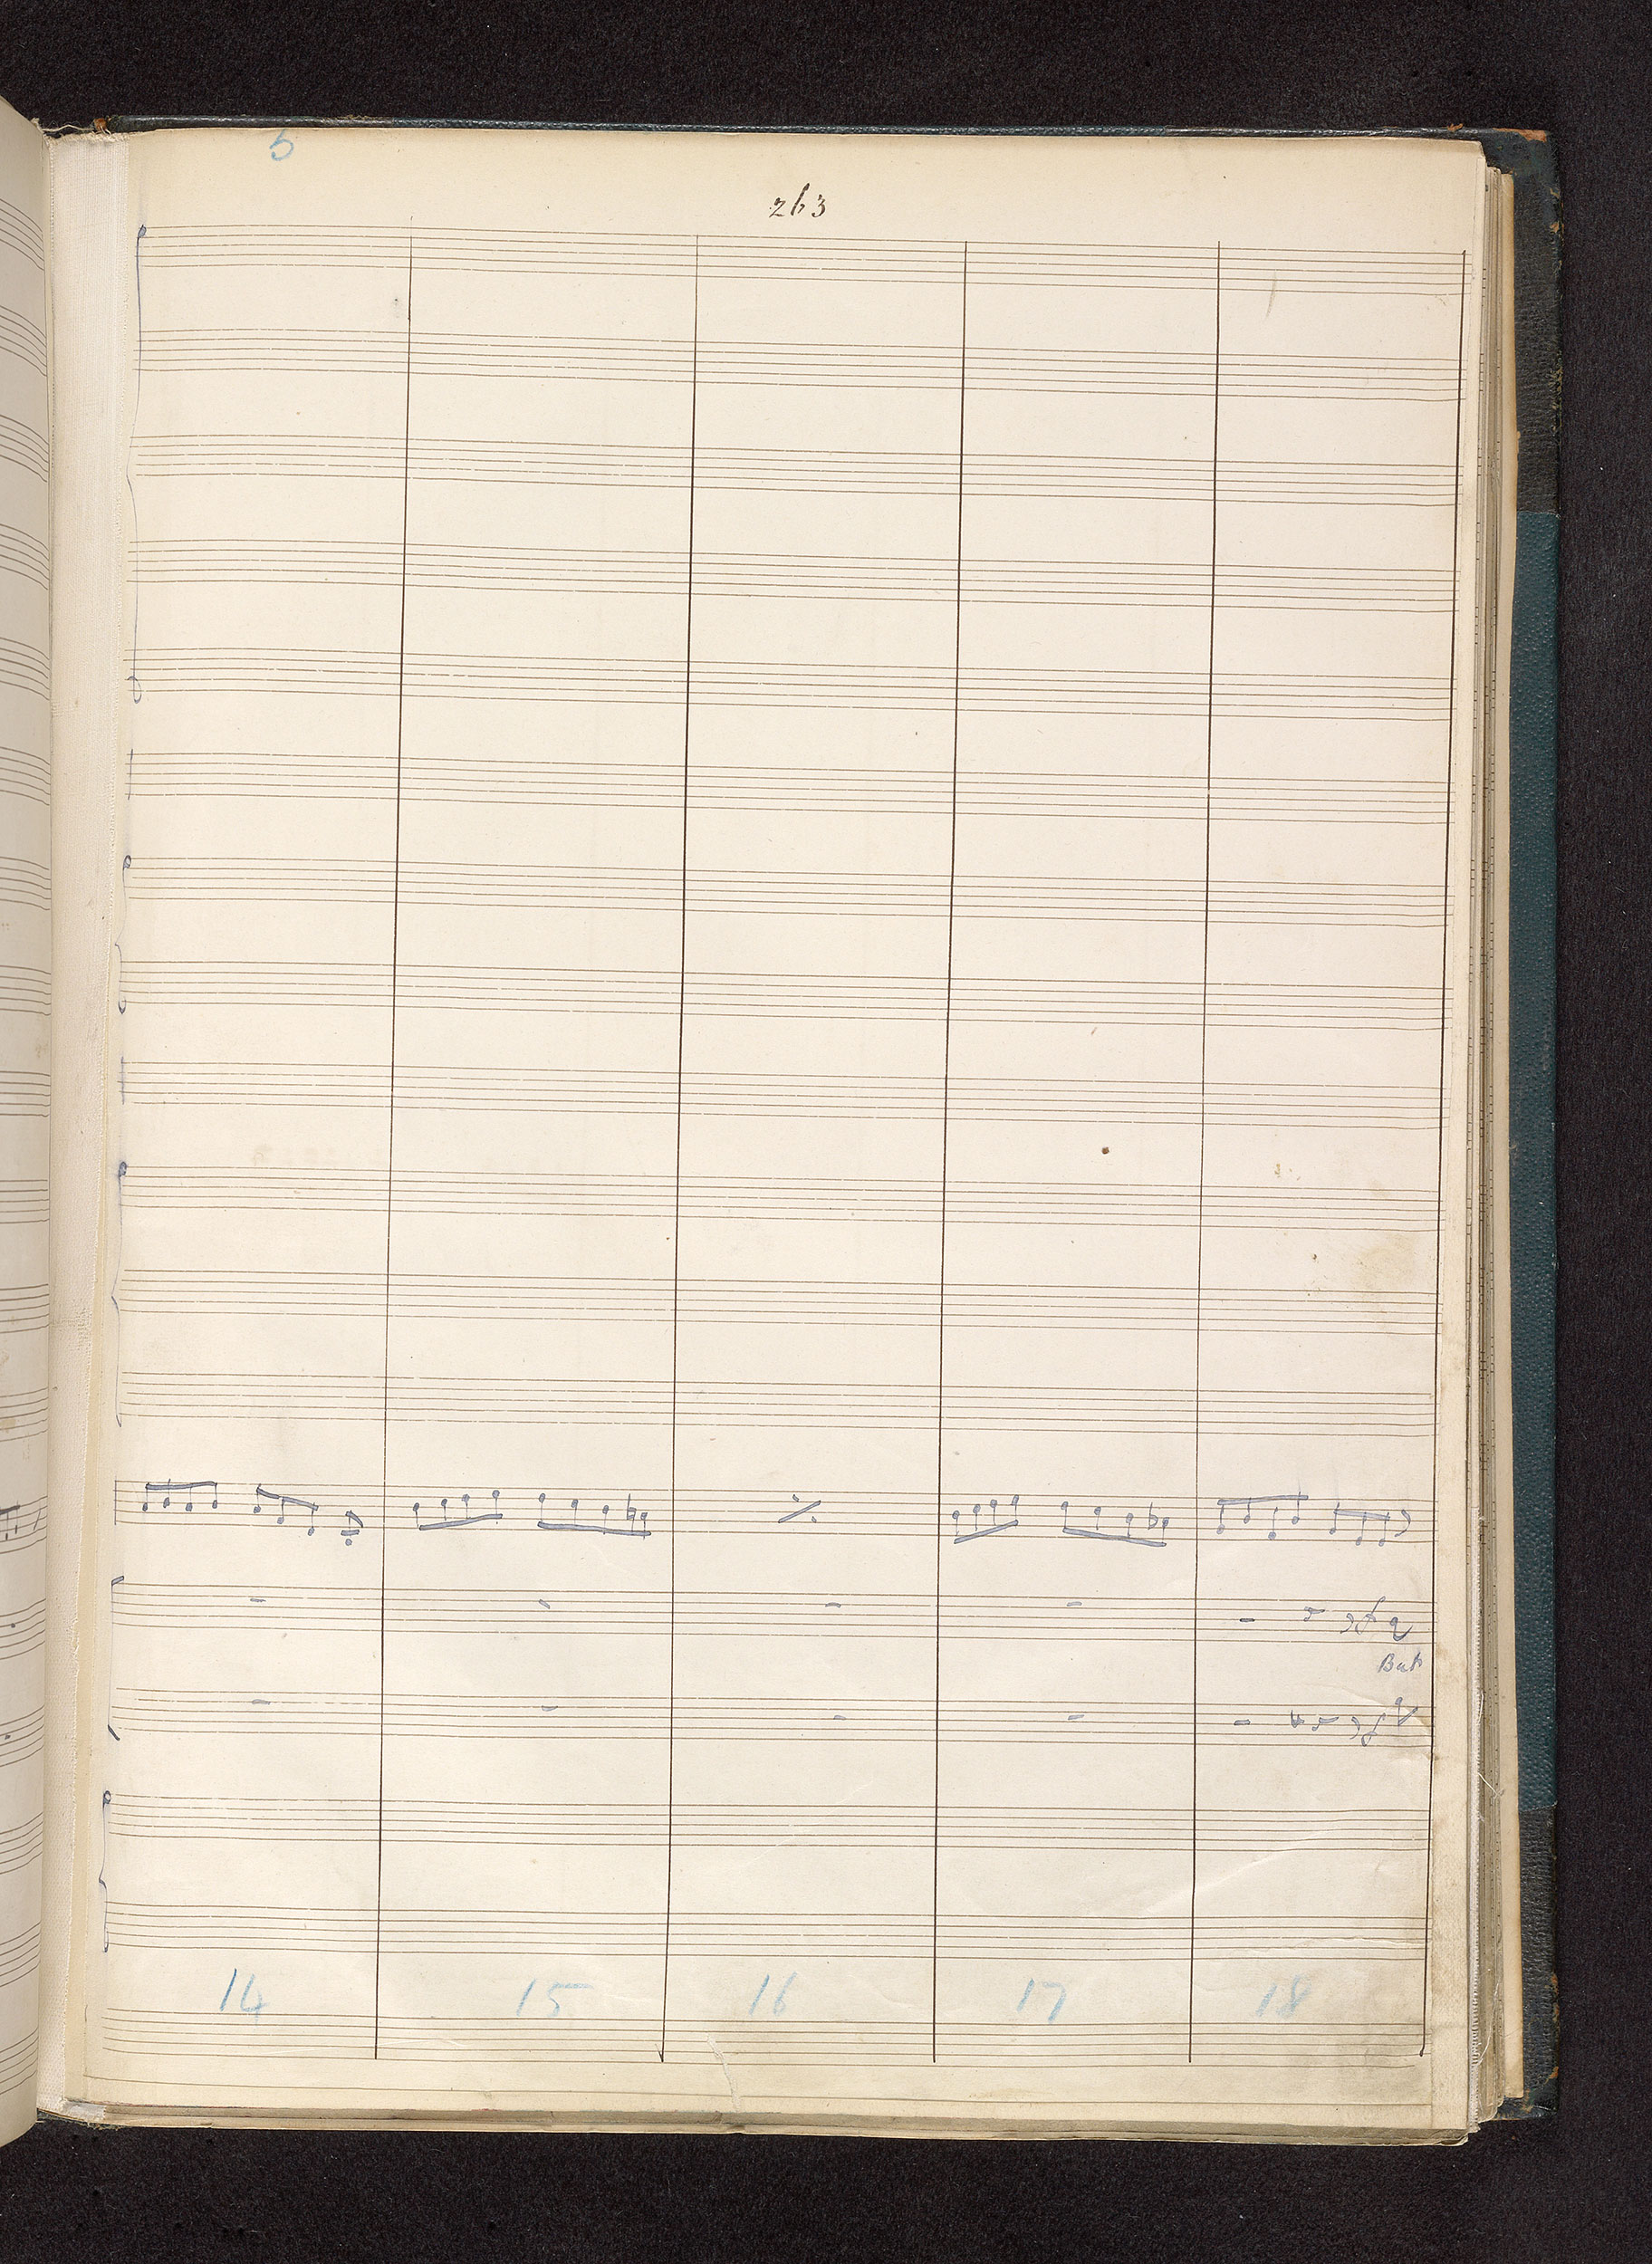 5
263
Bat
14 15 16 17 18